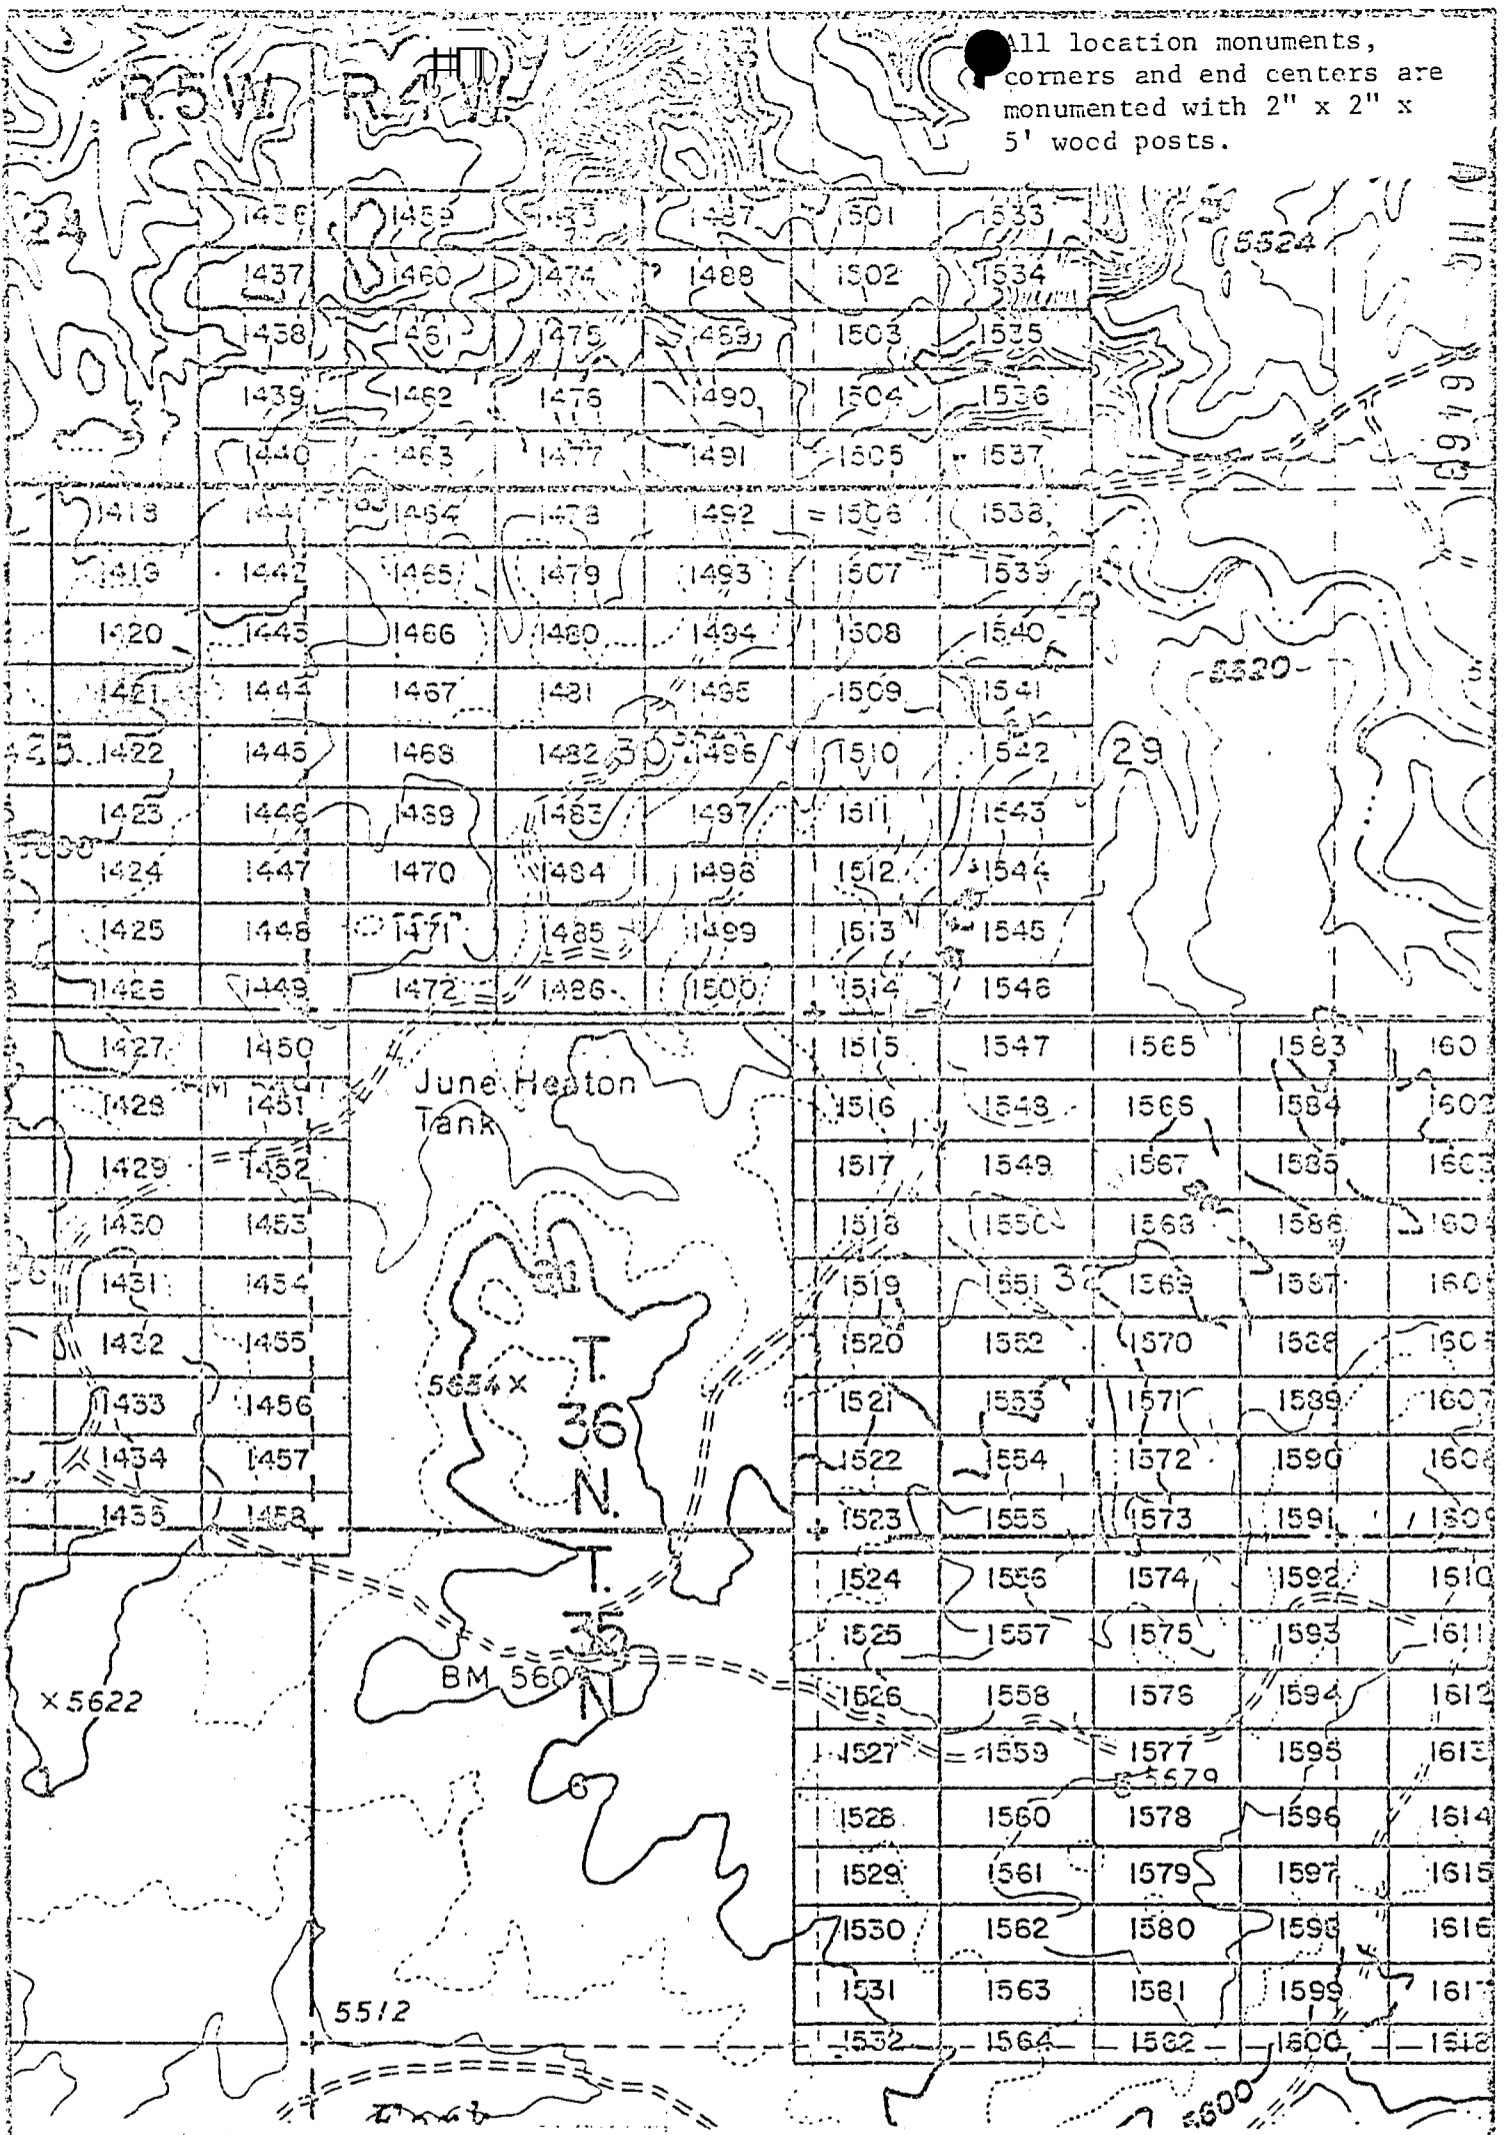 All location monuments,
corners and end centers are
monumented with 2" x 2" x
5' wood posts.
R.5W. R.4W.
1436 1459 1473 1487 1501 1533
5524
1437 1460 1474 1488 1502 1534
1438 1461 1475 1489 1503 1535
1439 1462 1476 1490 1504 1536
1440 1463 1477 1491 1505 1537
1418 1441 1464 1478 1492 1506 1538
1419 1442 1465 1479 1493 1507 1539
1420 1443 1466 1480 1494 1508 1540
5520
1421 1444 1467 1481 1495 1509 1541
1422 1445 1468 1482 30 1496 1510 1542 29
1423 1446 1469 1483 1497 1511 1543
1424 1447 1470 1484 1498 1512 1544
1425 1448 1471 1485 1499 1513 1545
1426 1449 1472 1486 1500 1514 1546
1427 1450 1515 1547 1565 1583 160
June Heaton
Tank
1428 1451 1516 1548 1566 1584 1602
1429 1452 1517 1549 1567 1585 1603
1430 1453 1518 1550 1568 1586 1604
1431 1454 1519 1551 32 1569 1587 1605
1432 1455 1520 1552 1570 1588 1606
1433 1456 5654 1521 1553 1571 1589 1607
1434 1457 1522 1554 1572 1590 1608
1435 1458 1523 1555 1573 1591 1609
T.
36
N.
T.
35
N
1524 1556 1574 1592 1610
1525 1557 1575 1593 1611
BM 560
×5622
1526 1558 1576 1594 1612
1527 1559 1577 1595 1613
5679
6
1528 1560 1578 1596 1614
1529 1561 1579 1597 1615
1530 1562 1580 1598 1616
1531 1563 1581 1599 1617
5512
1532 1564 1582 1600 1618
5600